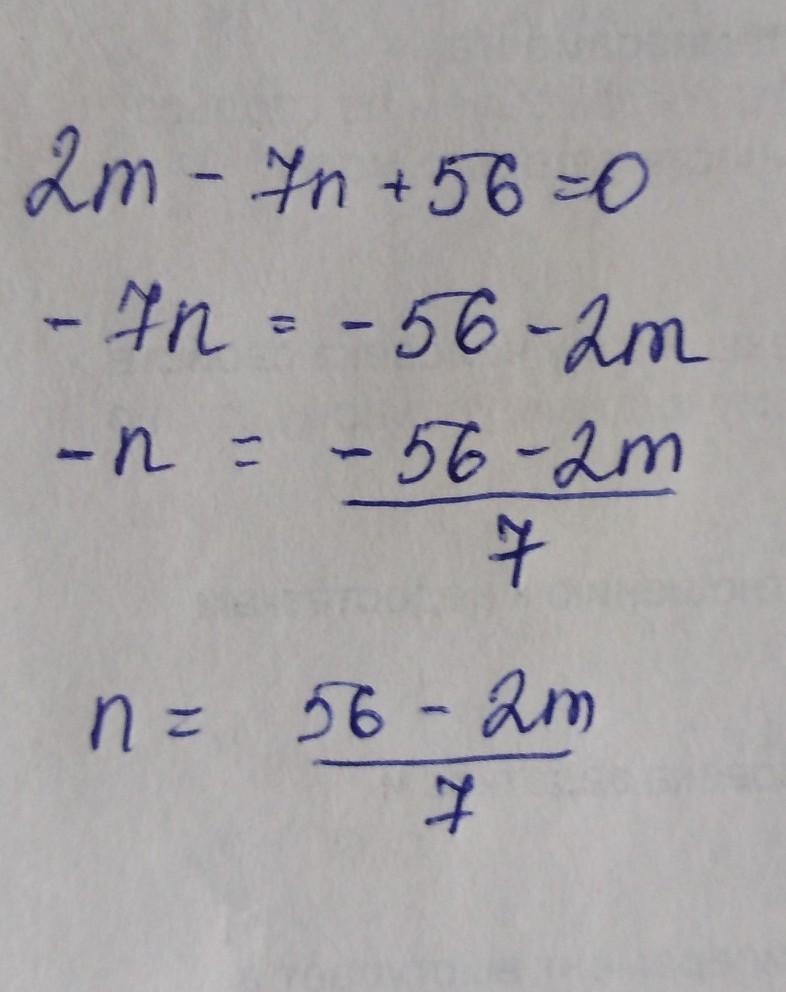 2m - 7n + 56 = 0
- 7n = - 56 - 2m
- n = - 56 - 2m
7
n = 56 - 2m
7